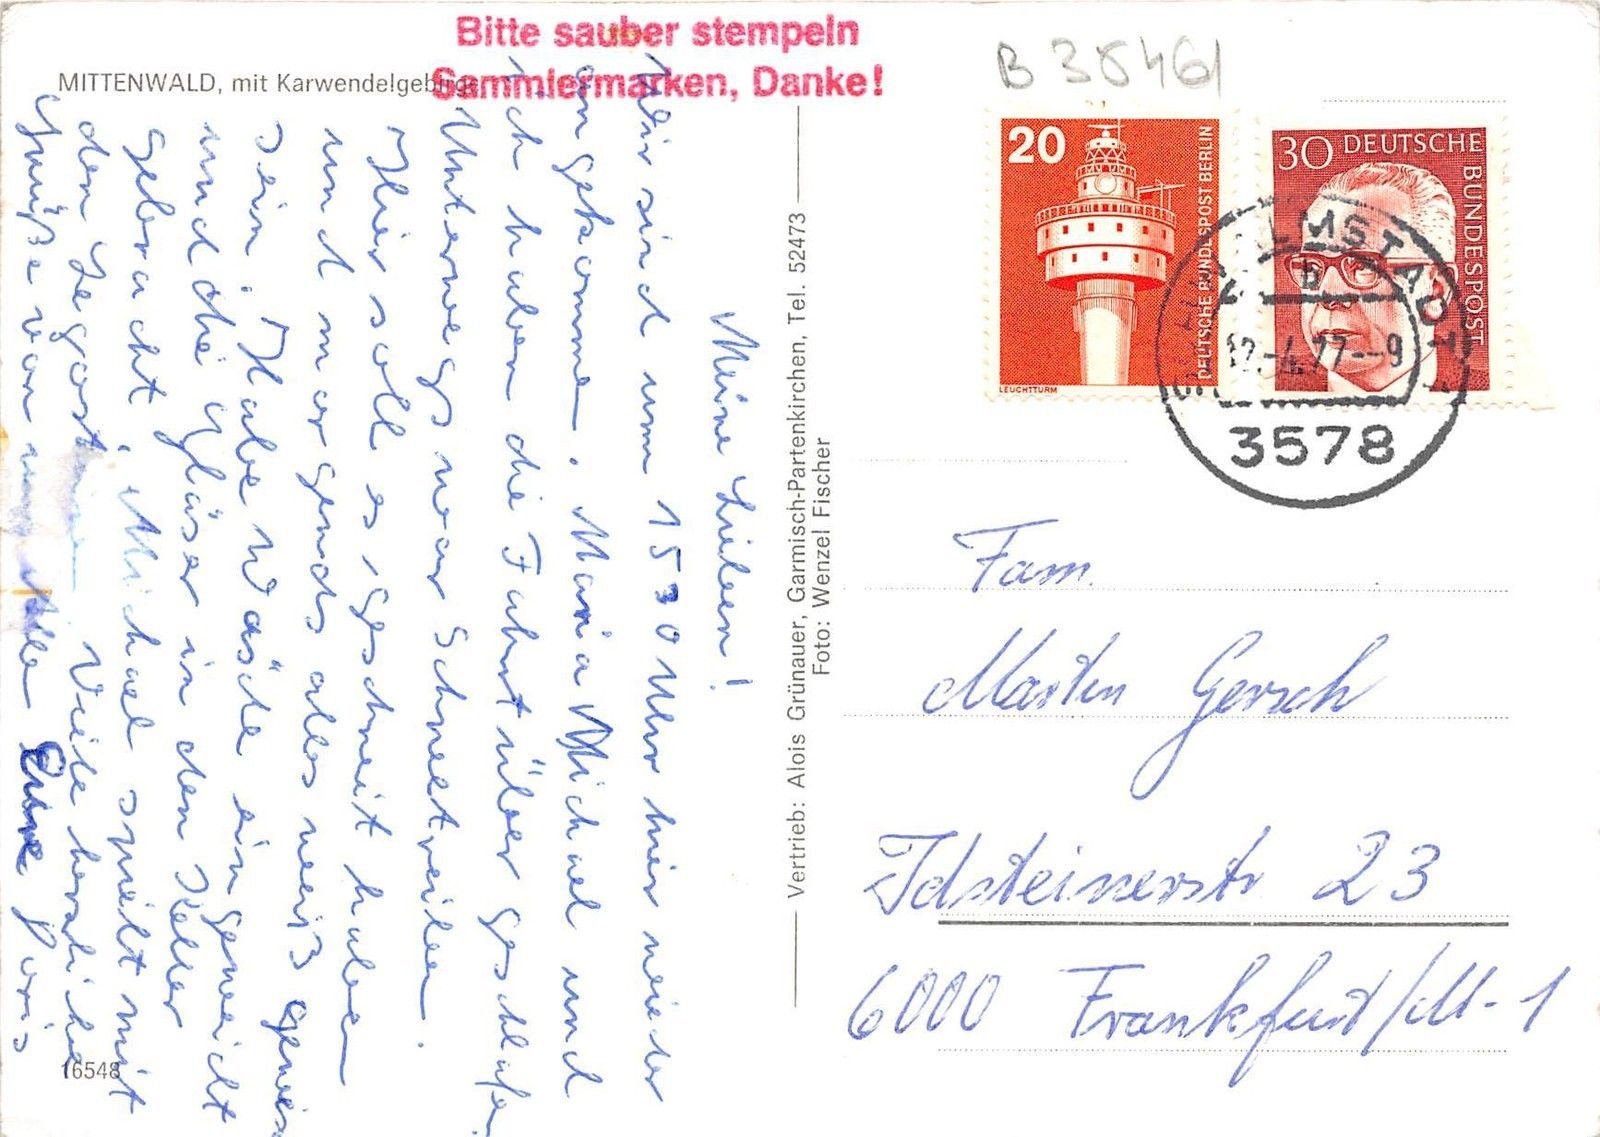 Bitte sauber stempeln
Sammlermarken, Danke!
MITTENWALD, mit Karwendelgebirge
B 35461
20
DEUTSCHE BUNDESPOST BERLIN
LEUCHTTURM
30 DEUTSCHE
BUNDESPOST
b
12.-4.77--9
3578
Meine Lieben!
Wir sind um 1530 Uhr hier wieder
angekommen. Maria Michael und
ich haben die Fahrt über geschlafen
Unterwegs war Schnetreiben.
Hier soll es geschneit haben
und morgends alles weiß gewesen
sein. Habe Wäsche eingeweicht
und die Gläser in den Keller
gebracht. Michael spielt mit
den Legosteinen. Viele herzliche
Grüße von Eure Doris
16548
Vertrieb: Alois Grünauer, Garmisch-Partenkirchen, Tel. 52473
Foto: Wenzel Fischer
Fam.
Martin Gersch
Idsteinerstr 23
6000 Frankfurt/M-1